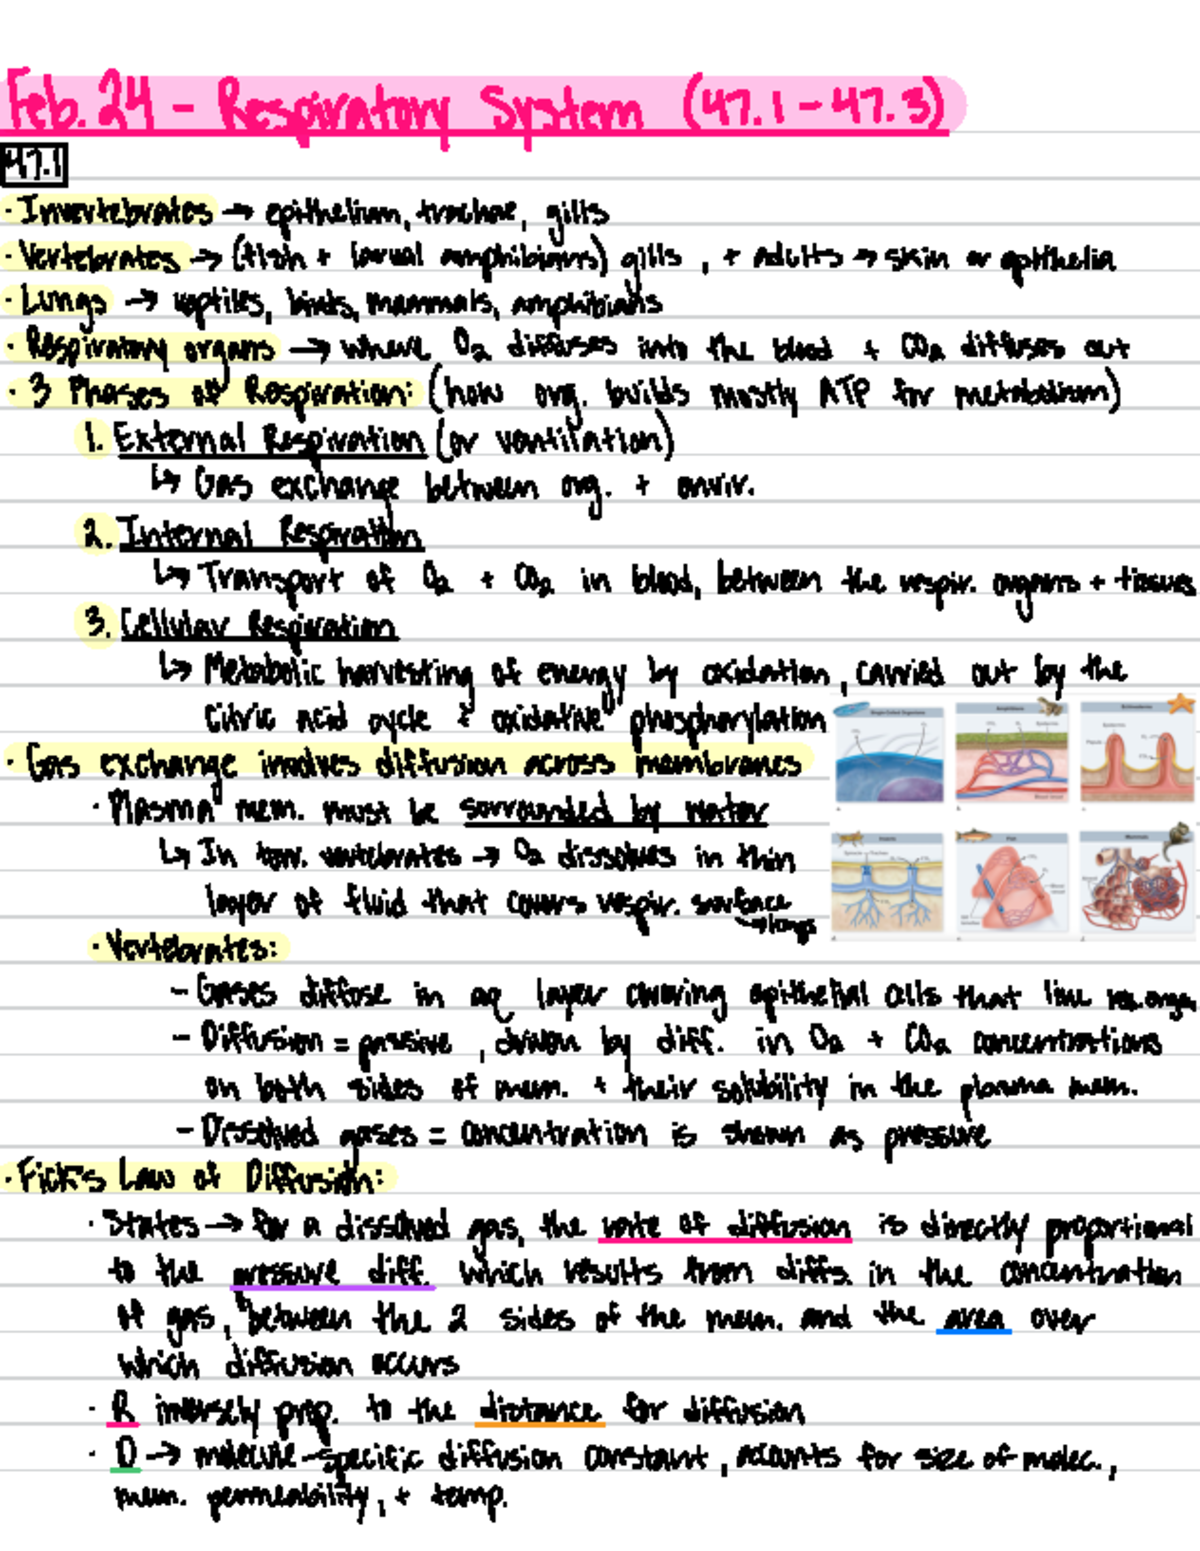 Feb. 24 - Respiratory System (47.1 - 47.3)
47.1
· Invertebrates → epithelium, trachae, gills
· Vertebrates → (fish + larval amphibians) gills, + adults → skin or epithelia
· Lungs → reptiles, birds, mammals, amphibians
· Respiratory organs → where O2 diffuses into the blood + CO2 diffuses out
· 3 Phases of Respiration: (how org. builds mostly ATP for metabolism)
1. External Respiration (or ventilation)
↳ Gas exchange between org. + envir.
2. Internal Respiration
↳ Transport of O2 + CO2 in blood, between the respir. organs + tissues
3. Cellular Respiration
↳ Metabolic harvesting of energy by oxidation, carried out by the
citric acid cycle + oxidative phosphorylation
Single-Celled Organisms
Amphibians
Echinoderms
· Gas exchange involves diffusion across membranes
· Plasma mem. must be surrounded by water
Insects
Fish
Mammals
↳ In terr. vertebrates → O2 dissolves in thin
layer of fluid that covers respir. surface
→ lungs
· Vertebrates:
- Gases diffuse in aq layer covering epithelial cells that line res. organs
- Diffusion = passive, driven by diff. in O2 + CO2 concentrations
on both sides of mem. + their solubility in the plasma mem.
- Dissolved gases = concentration is shown as pressure
· Fick's Law of Diffusion:
· States → for a dissolved gas, the rate of diffusion is directly proportional
to the pressure diff. which results from diffs. in the concentration
of gas, between the 2 sides of the mem. and the area over
which diffusion occurs
· R inversely prop. to the distance for diffusion
· D → molecule-specific diffusion constant, accounts for size of molec.,
mem. permeability, + temp.